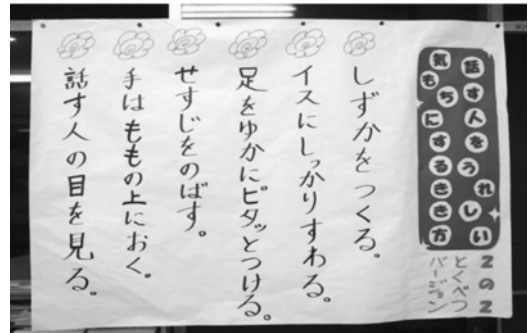 話す人をうれしい
気もちにするきき方
2の2
とくべつ
バージョン
しずかをつくる。
イスにしっかりすわる。
足をゆかにピタッとつける。
せすじをのばす。
手はももの上におく。
話す人の目を見る。